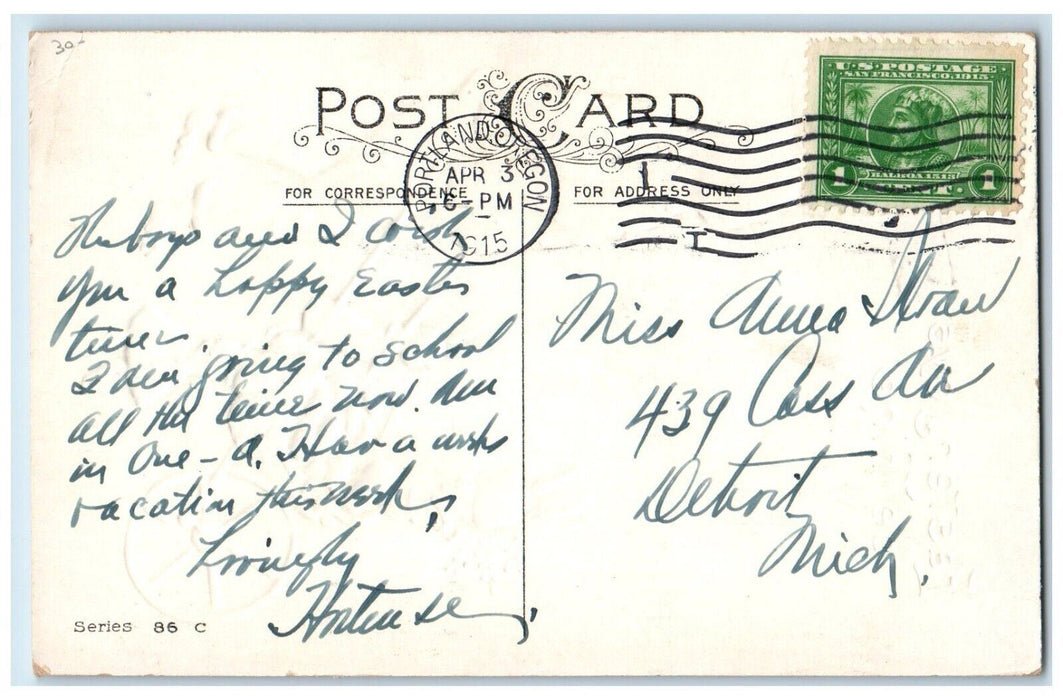 30-
POST CARD
U.S. POSTAGE
SAN FRANCISCO, 1915
BALBOA 1513
1 CENT 1
PORTLAND OREGON
APR 3
6-PM
1915
FOR CORRESPONDENCE
FOR ADDRESS ONLY
The boys and I wish
you a happy Easter
time
I am going to school
all the time now. Am
in One-A. Have a weeks
vacation this week,
Lovingly
Hortense,
Miss Anna
439 Cass Av
Detroit
Mich.
Series 86 C